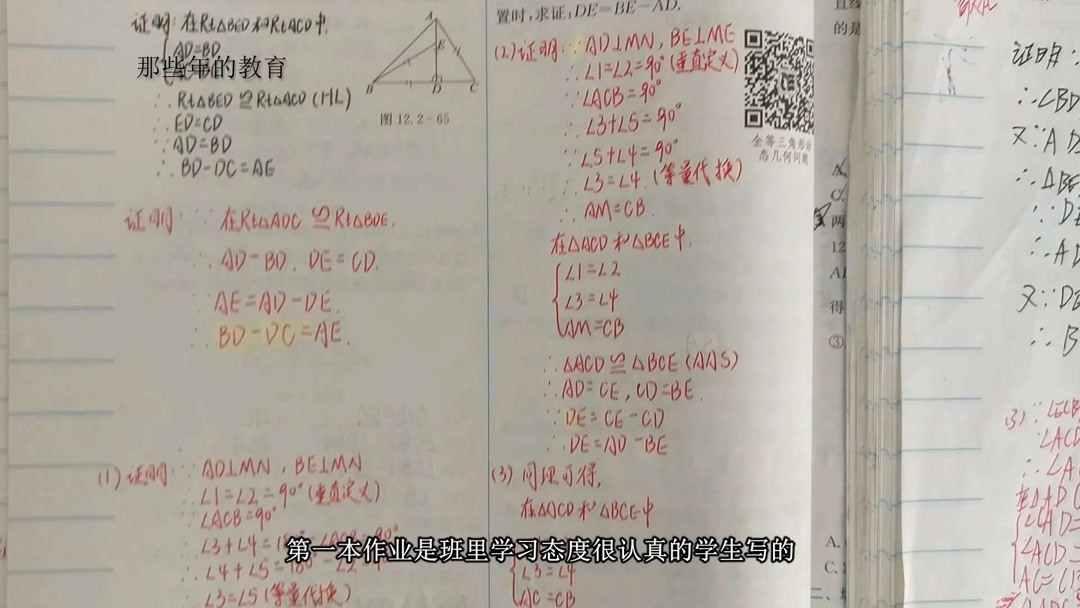 证明:在Rt△BED和Rt△ACD中.
AD=BD
那些年的教育
∴Rt△BED≌Rt△ACD(HL)
∴ED=CD
∵AD=BD
∴BD-DC=AE
A
E
B
D
C
图12.2-65
证明:∵在Rt△ADC≌Rt△BDE.
∴AD=BD.DE=CD.
∵AE=AD-DE.
∴BD-DC=AE.
(1)证明:∵AD⊥MN,BE⊥MN
∴∠1=∠2=90°(垂直定义)
∵∠ACB=90°
∴∠3=∠5(等量代换)
置时,求证:DE=BE-AD.
(2)证明:∵AD⊥MN,BE⊥ME
∴∠1=∠2=90°(垂直定义)
∵∠ACB=90°
∴∠3+∠5=90°
∵∠5+∠4=90°
∴∠3=∠4.(等量代换)
∴AM=CB.
在△ACD和△BCE中.
∠1=∠2
∠3=∠4
AM=CB
∴△ACD≌△BCE(AAS)
∴AD=CE,CD=BE.
∵DE=CE-CD
∴DE=AD-BE
(3)同理可得,
在△ACD和△BCE中
∠3=∠4
AC=CB
全等三角形动
态几何问题
第一本作业是班里学习态度很认真的学生写的
直线
的是
A.
C.
两
12
得
③
A.
C.
证明:
∴∠BD
又∵AD
∴△BE
∴AD
又∵DE
∴B
∠ACD
∴∠A
∠ACD=